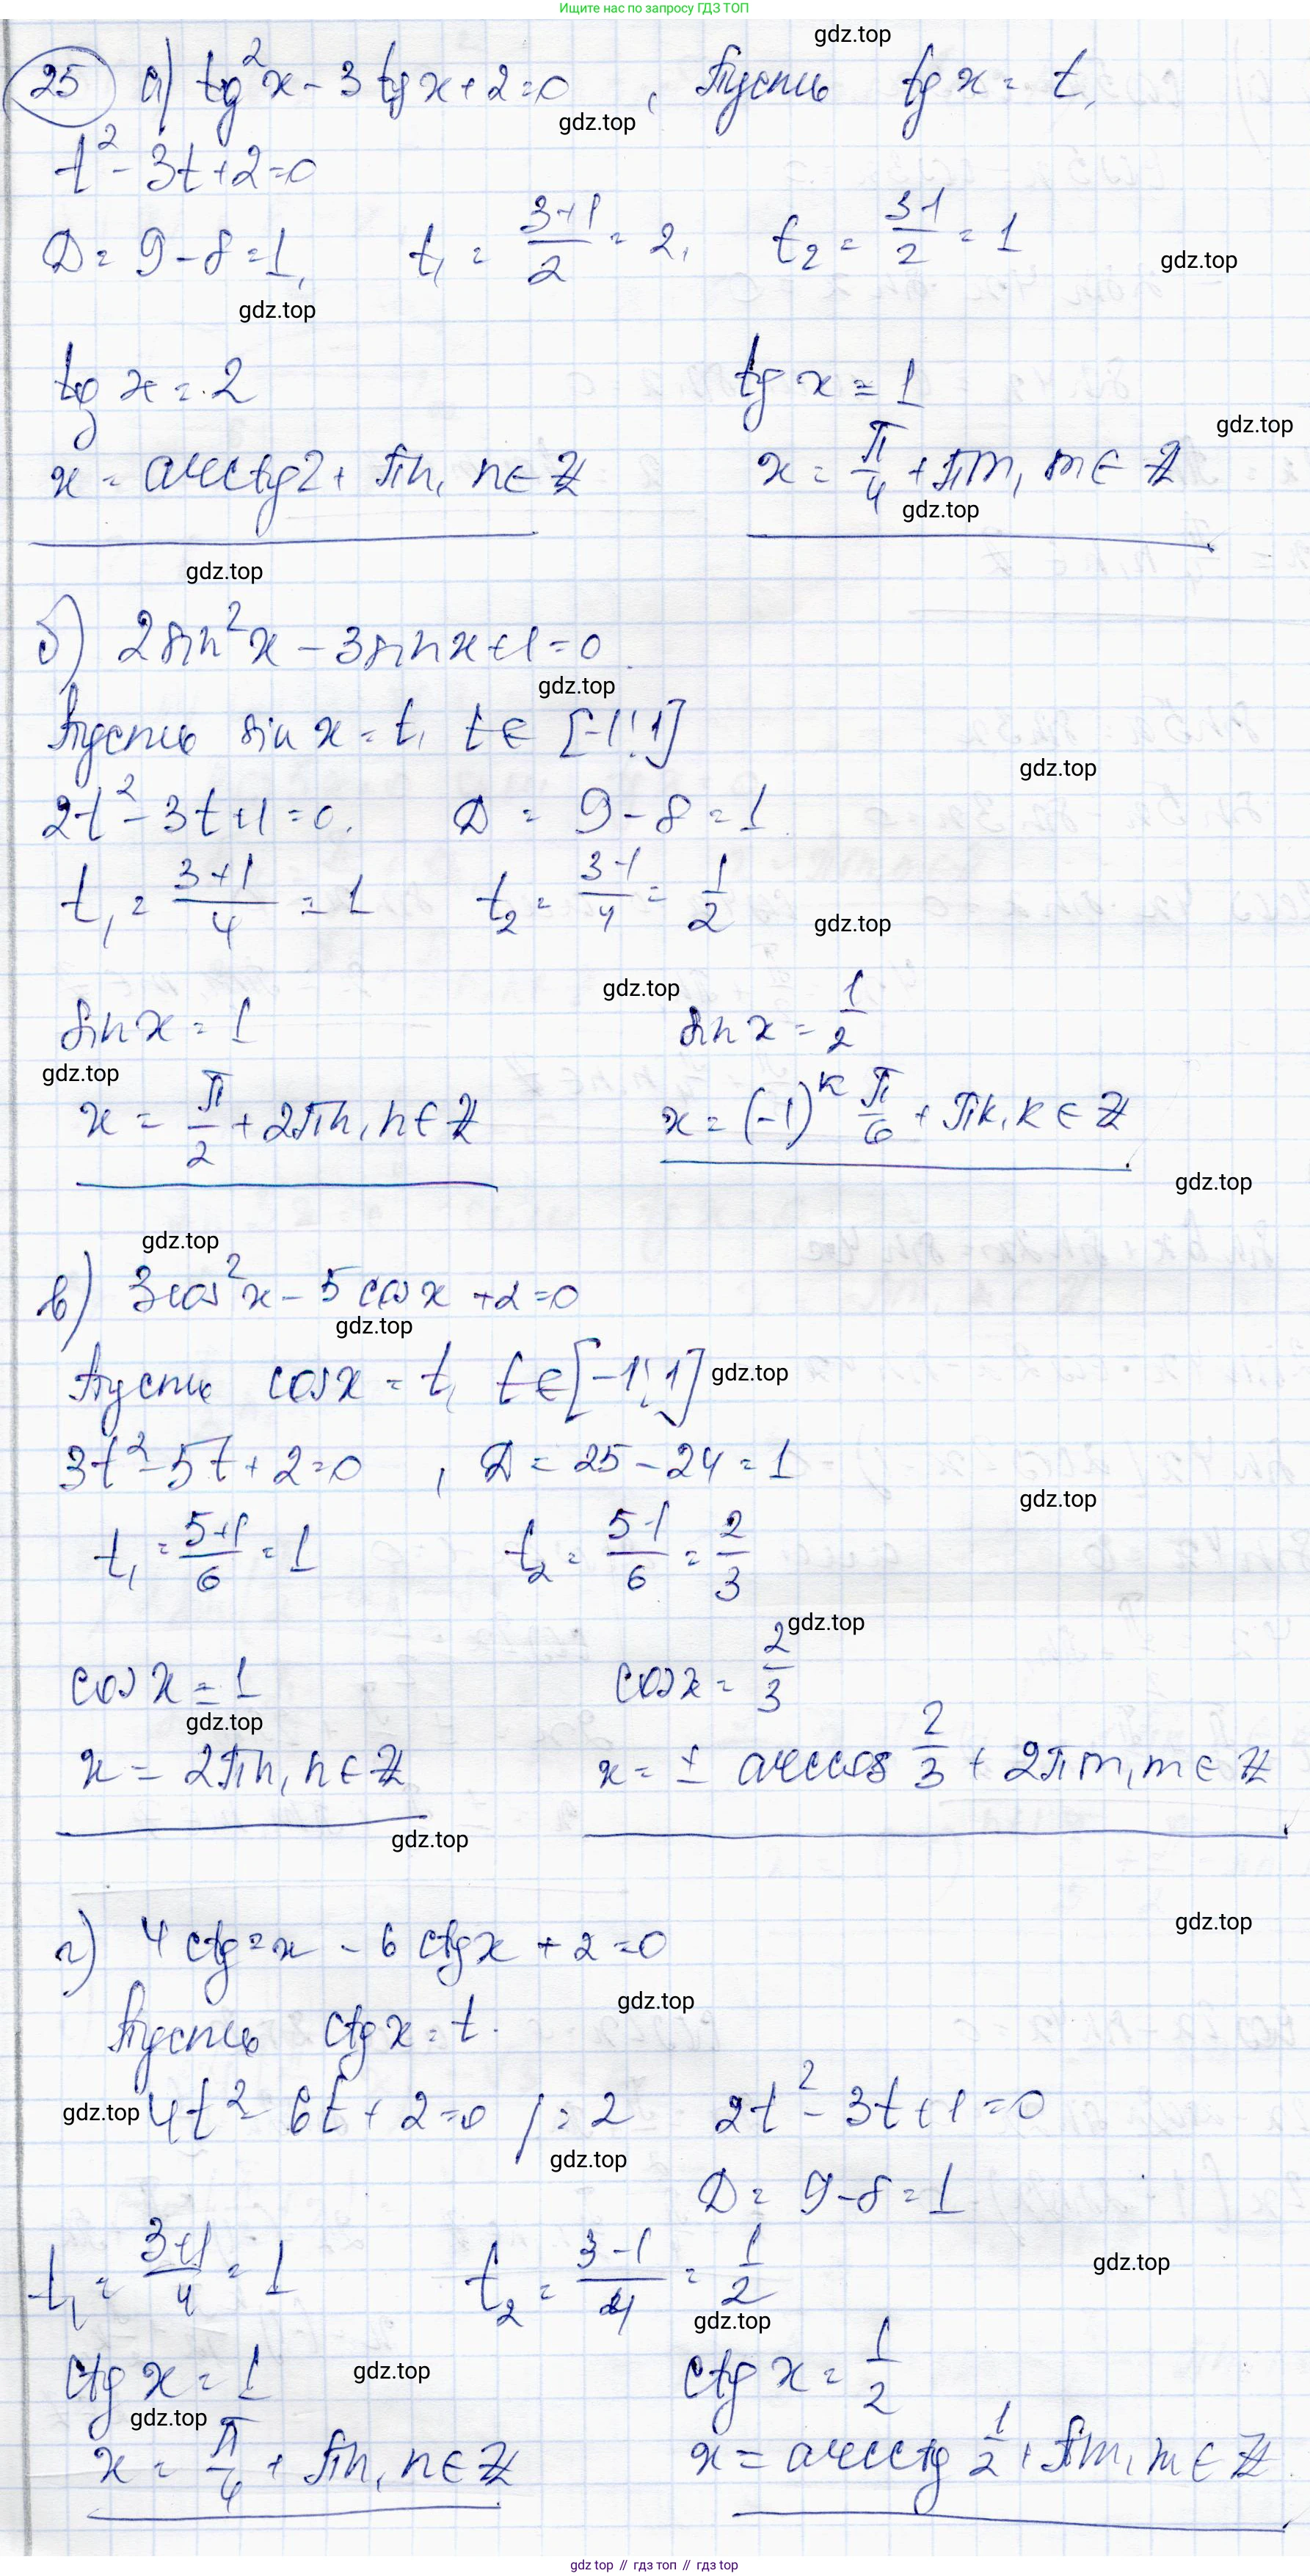 Ищите нас по запросу ГДЗ ТОП
gdz.top
25 а) tg²x - 3 tg x + 2 = 0, Пусть tg x = t,
gdz.top
t² - 3t + 2 = 0
D = 9 - 8 = 1, t₁ = (3+1)/2 = 2, t₂ = (3-1)/2 = 1
gdz.top
gdz.top
tg x = 2 tg x = 1
gdz.top
x = arctg 2 + πn, n ∈ Z x = π/4 + πm, m ∈ Z
gdz.top
gdz.top
б) 2 sin²x - 3 sin x + 1 = 0
gdz.top
Пусть sin x = t, t ∈ [-1; 1]
gdz.top
2t² - 3t + 1 = 0. D = 9 - 8 = 1
t₁ = (3+1)/4 = 1 t₂ = (3-1)/4 = 1/2
gdz.top
gdz.top
sin x = 1 sin x = 1/2
gdz.top
x = π/2 + 2πn, n ∈ Z x = (-1)^k π/6 + πk, k ∈ Z
gdz.top
gdz.top
в) 3 cos²x - 5 cos x + 2 = 0
gdz.top
Пусть cos x = t, t ∈ [-1; 1]
gdz.top
3t² - 5t + 2 = 0, D = 25 - 24 = 1
gdz.top
t₁ = (5+1)/6 = 1 t₂ = (5-1)/6 = 2/3
gdz.top
cos x = 1 cos x = 2/3
gdz.top
x = 2πn, n ∈ Z x = ± arccos 2/3 + 2πm, m ∈ Z
gdz.top
gdz.top
г) 4 ctg²x - 6 ctg x + 2 = 0
gdz.top
Пусть ctg x = t.
gdz.top
4t² - 6t + 2 = 0 /: 2 2t² - 3t + 1 = 0
gdz.top
D = 9 - 8 = 1
gdz.top
t₁ = (3+1)/4 = 1 t₂ = (3-1)/4 = 1/2
gdz.top
ctg x = 1 ctg x = 1/2
gdz.top
gdz.top
x = π/4 + πn, n ∈ Z x = arcctg 1/2 + πm, m ∈ Z
gdz top // гдз топ // гдз top